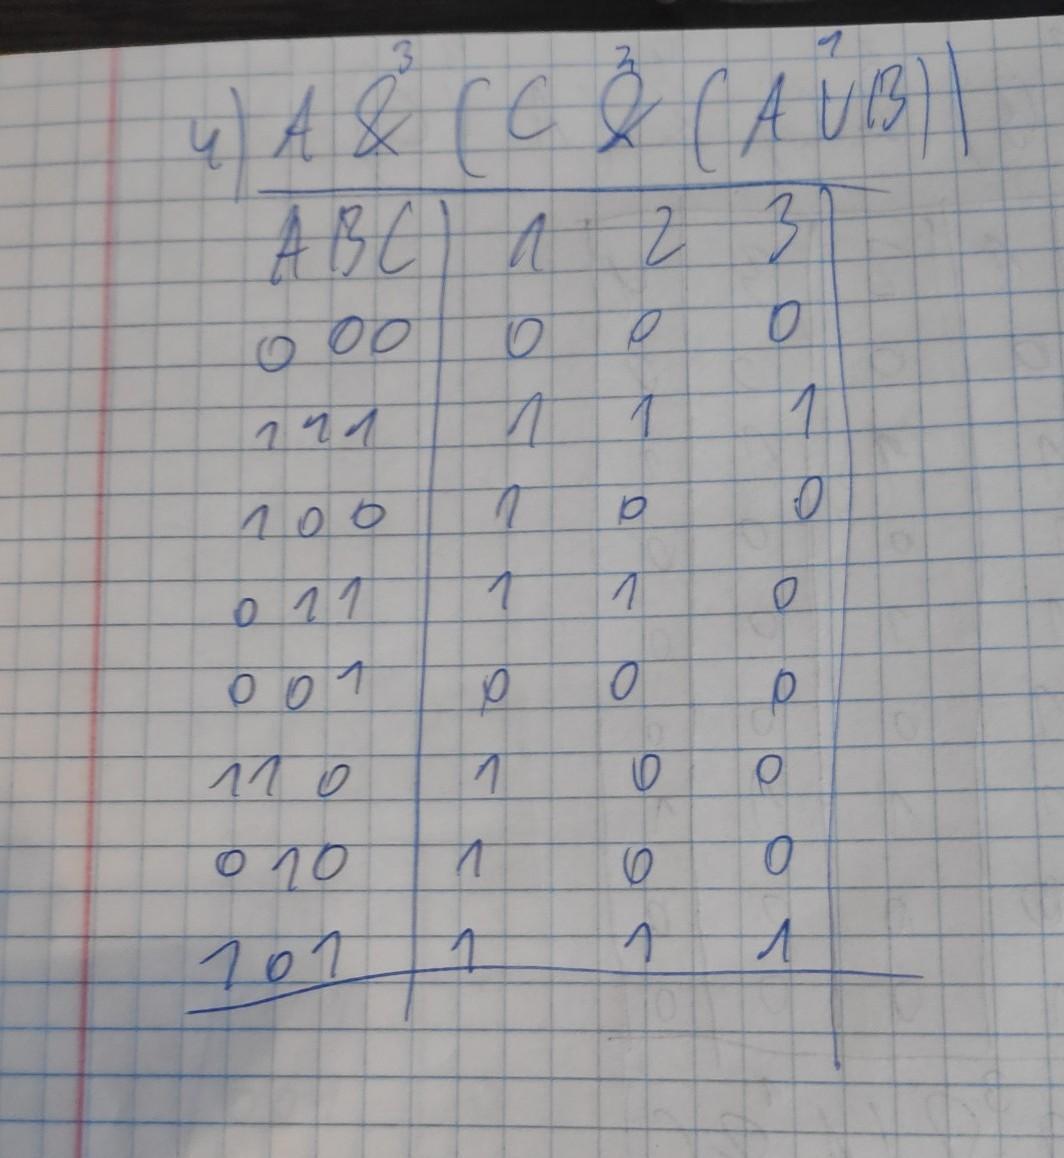 3 2 1
4) A & (C & (A ∪ B))
A B C 1 2 3
0 0 0 0 0 0
1 1 1 1 1 1
1 0 0 1 0 0
0 1 1 1 1 0
0 0 1 0 0 0
1 1 0 1 0 0
0 1 0 1 0 0
1 0 1 1 1 1